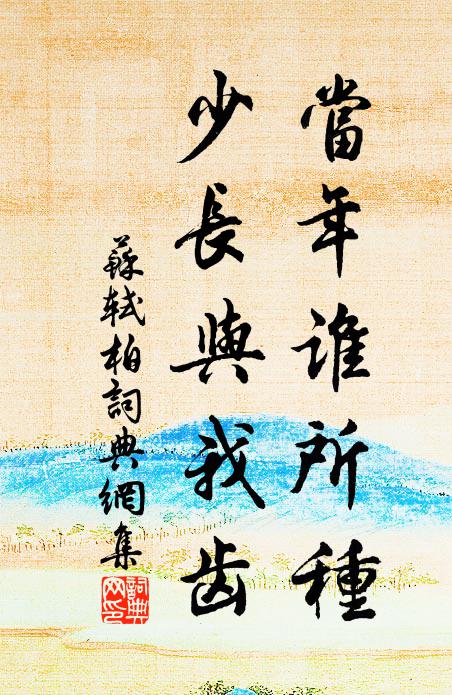 當年誰所種
少長與我齿
蘇軾柏詞典網集
詞典
网印